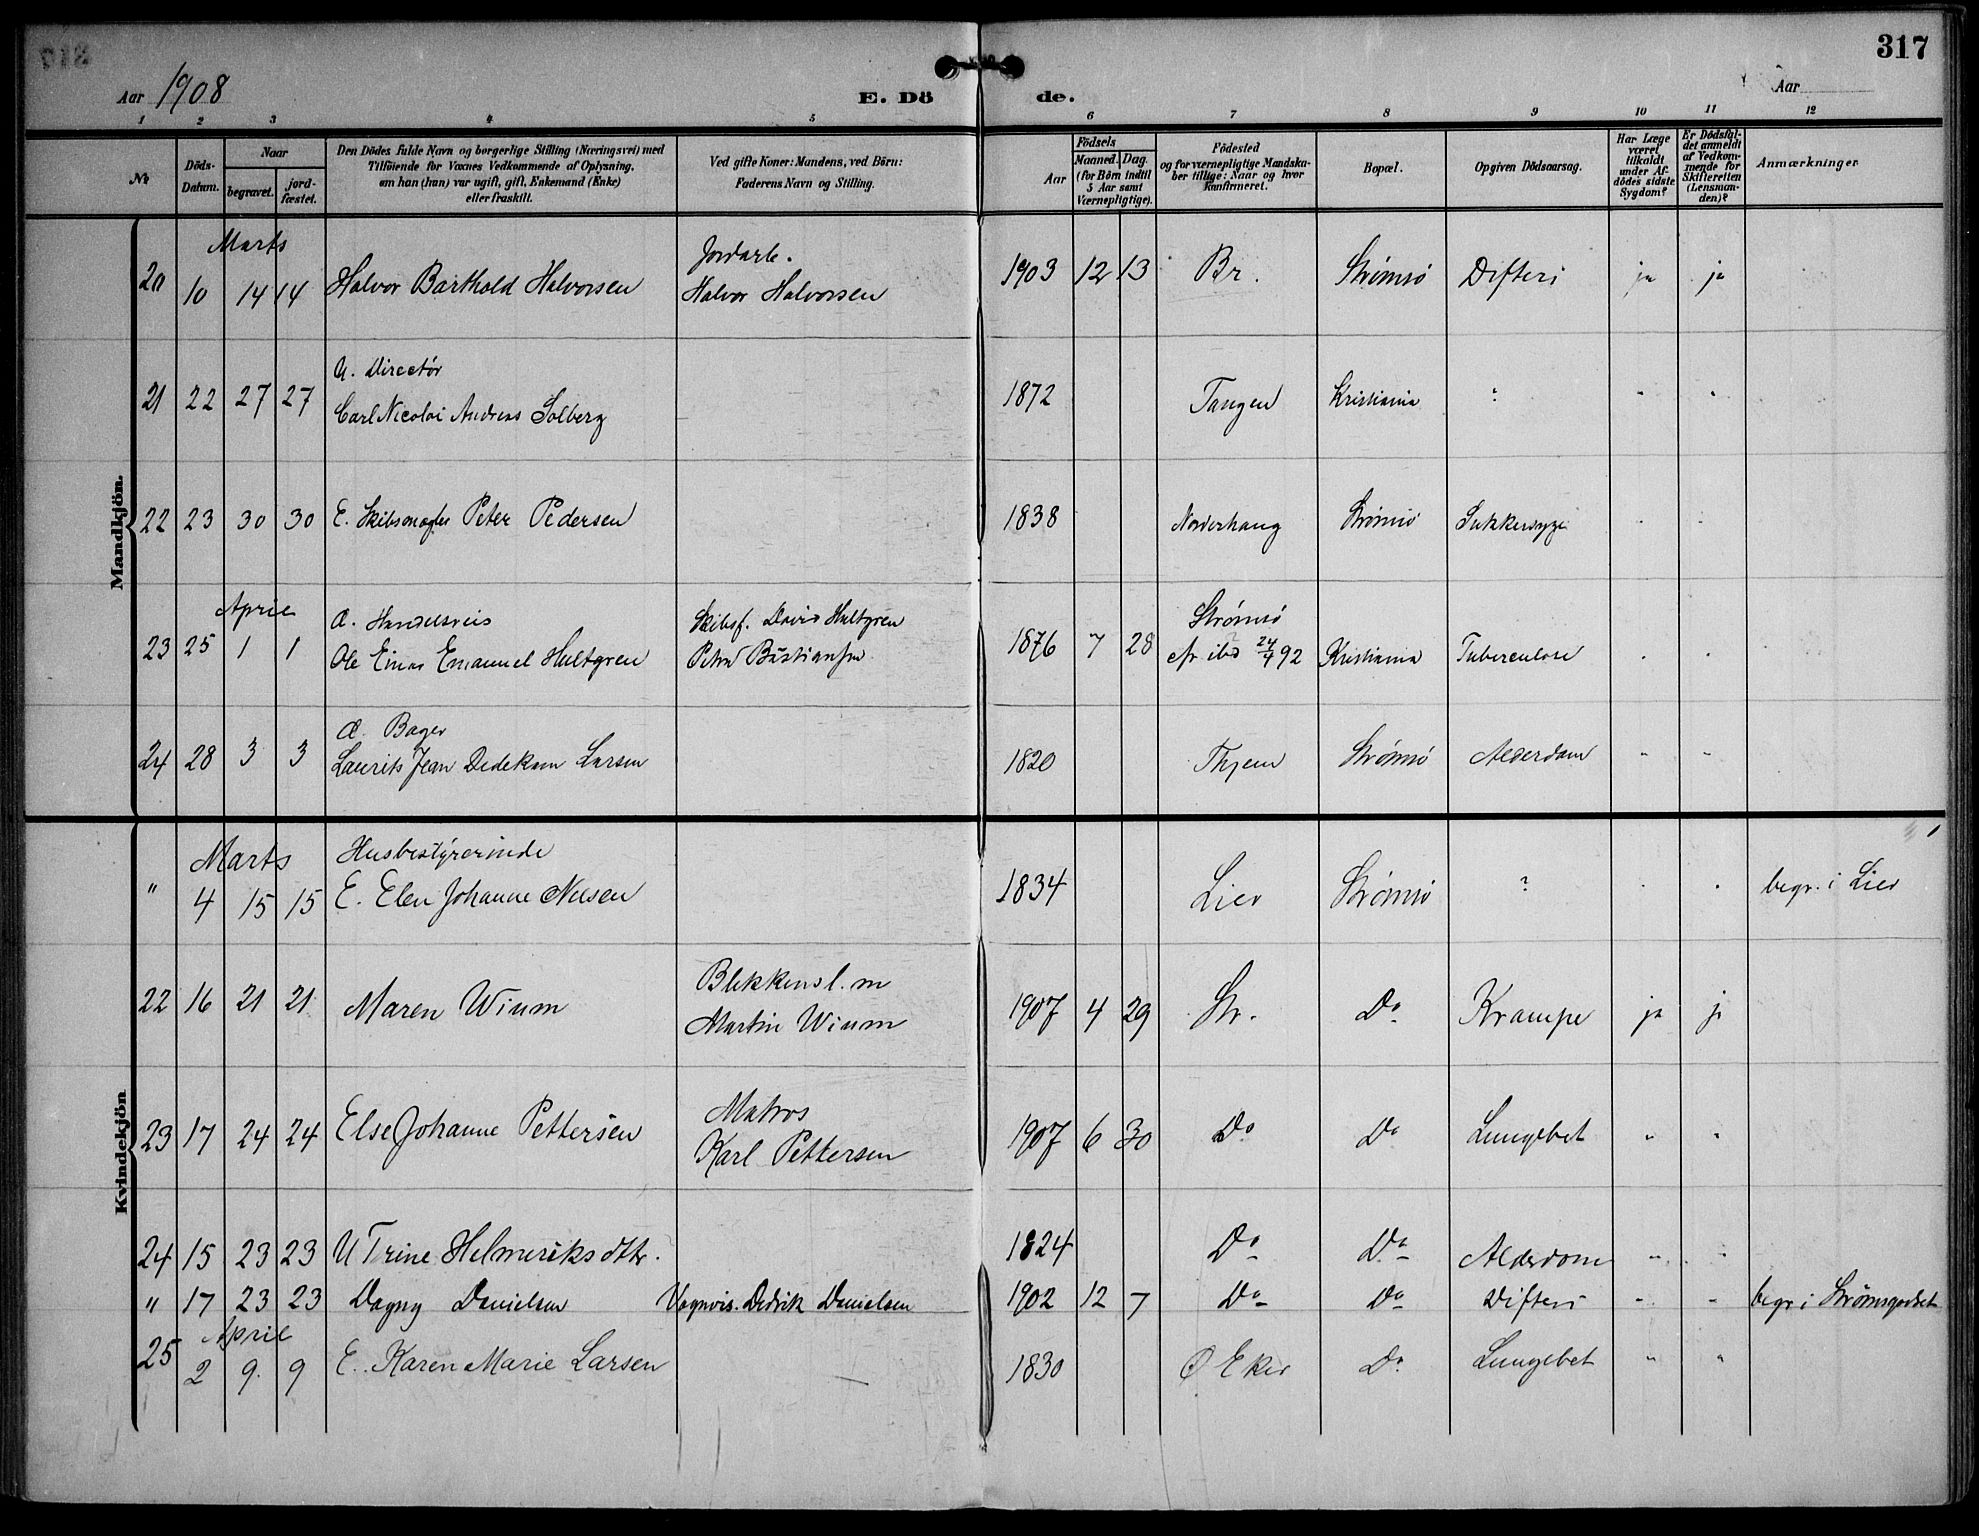 317
Aar 1908
E. Dö de.
Aar
1 2 3 4 5 6 7 8 9 10 11 12
No
Döds-Datum.
Naar
begravet.
jord-fæstet.
Den Dödes fulde Navn og borgerlige Stilling (Næringsvei) med
Tilföiende for Voxnes Vedkommende af Oplysning,
om han (hun) var ugift, gift, Enkemand (Enke)
eller fraskilt.
Ved gifte Koner: Mandens, ved Börn:
Faderens Navn og Stilling.
Födsels
Aar
Maaned. Dag.
(for Börn indtil
5 Aar samt
Værnepligtige).
Födested
og for værnepligtige Mandska-
ber tillige: Naar og hvor
Konfirmeret.
Bopæl.
Opgiven Dödsaarsag.
Har Læge
været
tilkaldt
under Af-
dödes sidste
Sygdom?
Er Dödsfal-
det anmeldt
af Vedkom-
mende for
Skifteretten
(Lensman-
den)?
Anmærkninger
Mandkjön.
Marts
Jordarb.
20 10 14 14 Halvor Barthold Halvorsen Halvor Halvorsen 1903 12 13 Br. Strømsø Difteri ja ja
U. Directør
21 22 27 27 Carl Nicolai Andreas Solberg 1872 Tangen Kristiania ? " "
22 23 30 30 E. Peter Pedersen 1838 Norderhaug Strømsø Sukkersyge " "
April
Æ. Handelsreis Skibsf. David Hultgren Strømsø
23 25 1 1 Ole Einar Emanuel Hultgren Petra Bastiansen 1876 7 28 cfr ibd 24/4 92 Kristiania Tuberculose " "
Æ. Bager
24 28 3 3 Laurits Jean Dedekam Larsen 1820 Strømsø Alderdom " "
Kvindekjön
1
Marts Husbestyrerinde
" 4 15 15 E. Elen Johanne Nilsen 1834 Lier Strømsø ? " " begr. i Lier
Blikkensl. m
22 16 21 21 Maren Wium Martin Wium 1907 4 29 Str. Do Krampe ja ja
Matros
23 17 24 24 Else Johanne Pettersen Karl Pettersen 1907 6 30 Do Do Lungebet " "
24 15 23 23 U Trine Helmeriksdttr. 1824 Do Do Alderdom " "
" 17 23 23 Dagny Danielsen Vognvis. Didrik Danielsen 1902 12 7 Do Do Difteri " " begr. i Strømsgodset
April
25 2 9. 9 E. Karen Marie Larsen 1830 Ø Eker Do Lungebet " "